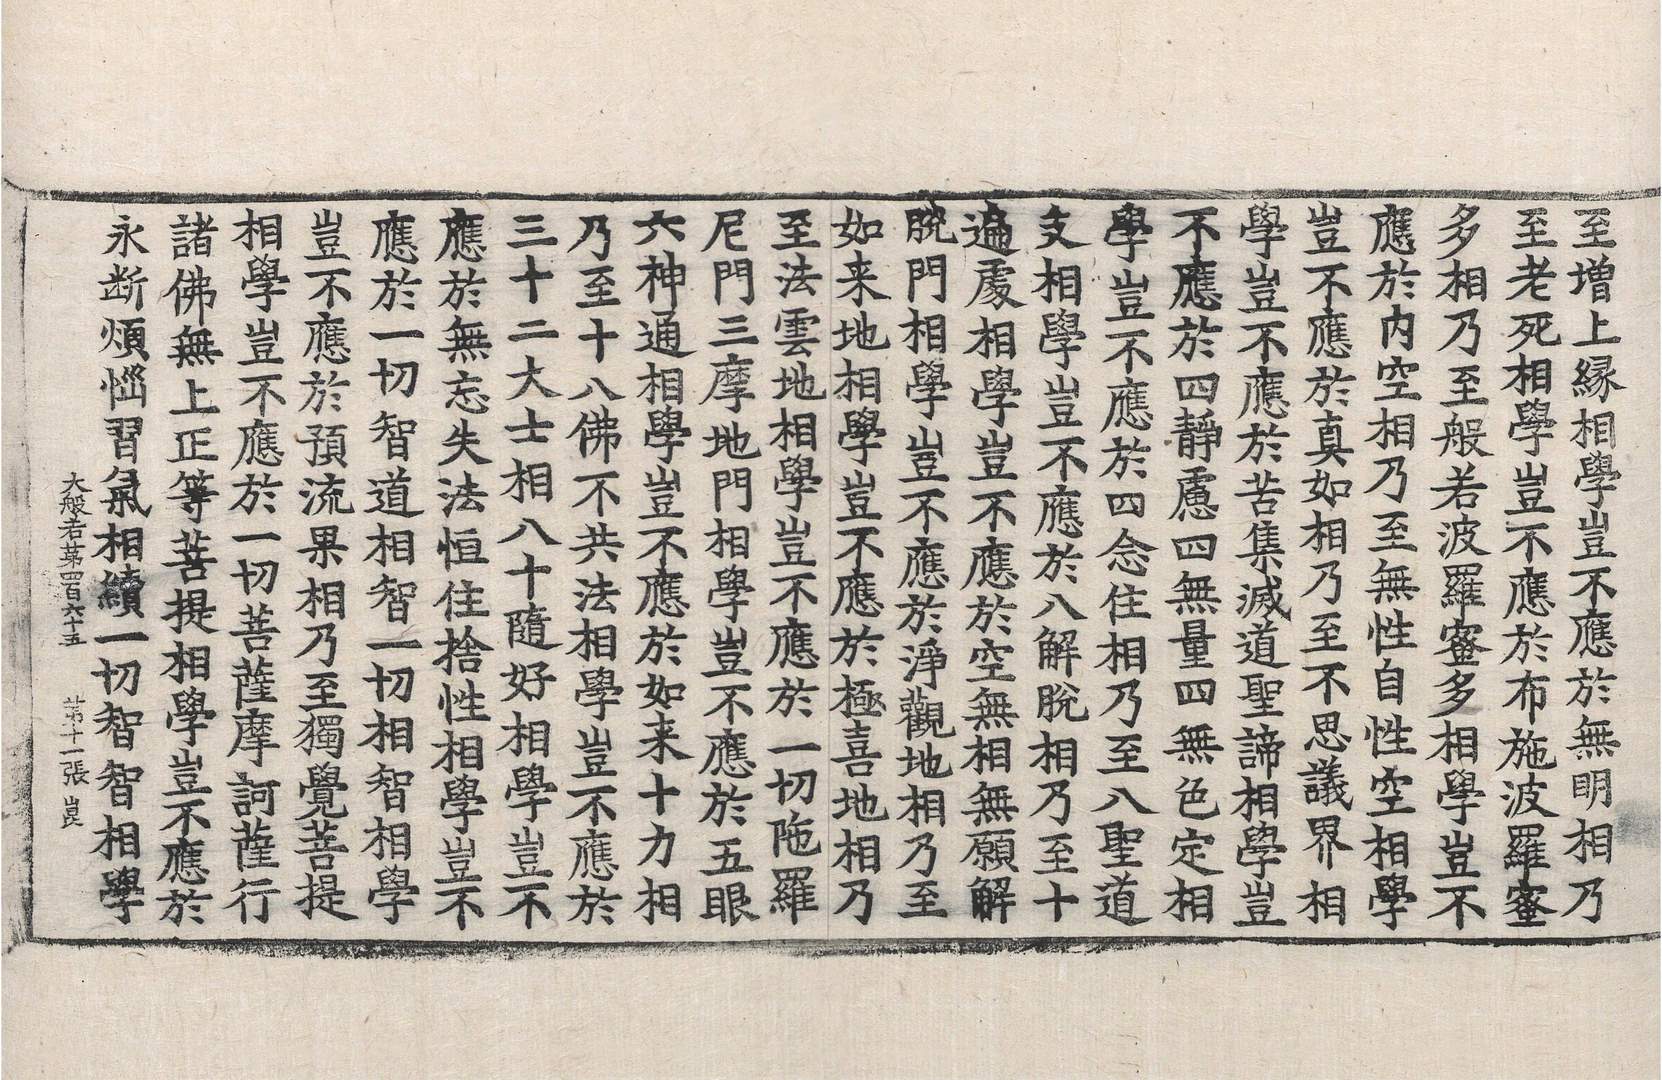 至增上縁相學豈不應於無明相乃
至老死相學豈不應於布施波羅蜜
多相乃至般若波羅蜜多相學豈不
應於内空相乃至無性自性空相學
豈不應於真如相乃至不思議界相
學豈不應於苦集滅道聖諦相學豈
不應於四靜慮四無量四無色定相
學豈不應於四念住相乃至八聖道
支相學豈不應於八解脫相乃至十
遍處相學豈不應於空無相無願解
脫門相學豈不應於淨觀地相乃至
如来地相學豈不應於極喜地相乃
至法雲地相學豈不應於一切陁羅
尼門三摩地門相學豈不應於五眼
六神通相學豈不應於如来十力相
乃至十八佛不共法相學豈不應於
三十二大士相八十隨好相學豈不
應於無忘失法恒住捨性相學豈不
應於一切智道相智一切相智相學
豈不應於預流果相乃至獨覺菩提
相學豈不應於一切菩薩摩訶薩行
諸佛無上正等菩提相學豈不應於
永断煩惱習氣相續一切智智相學
大般若第四百六十五 第十一張 崑